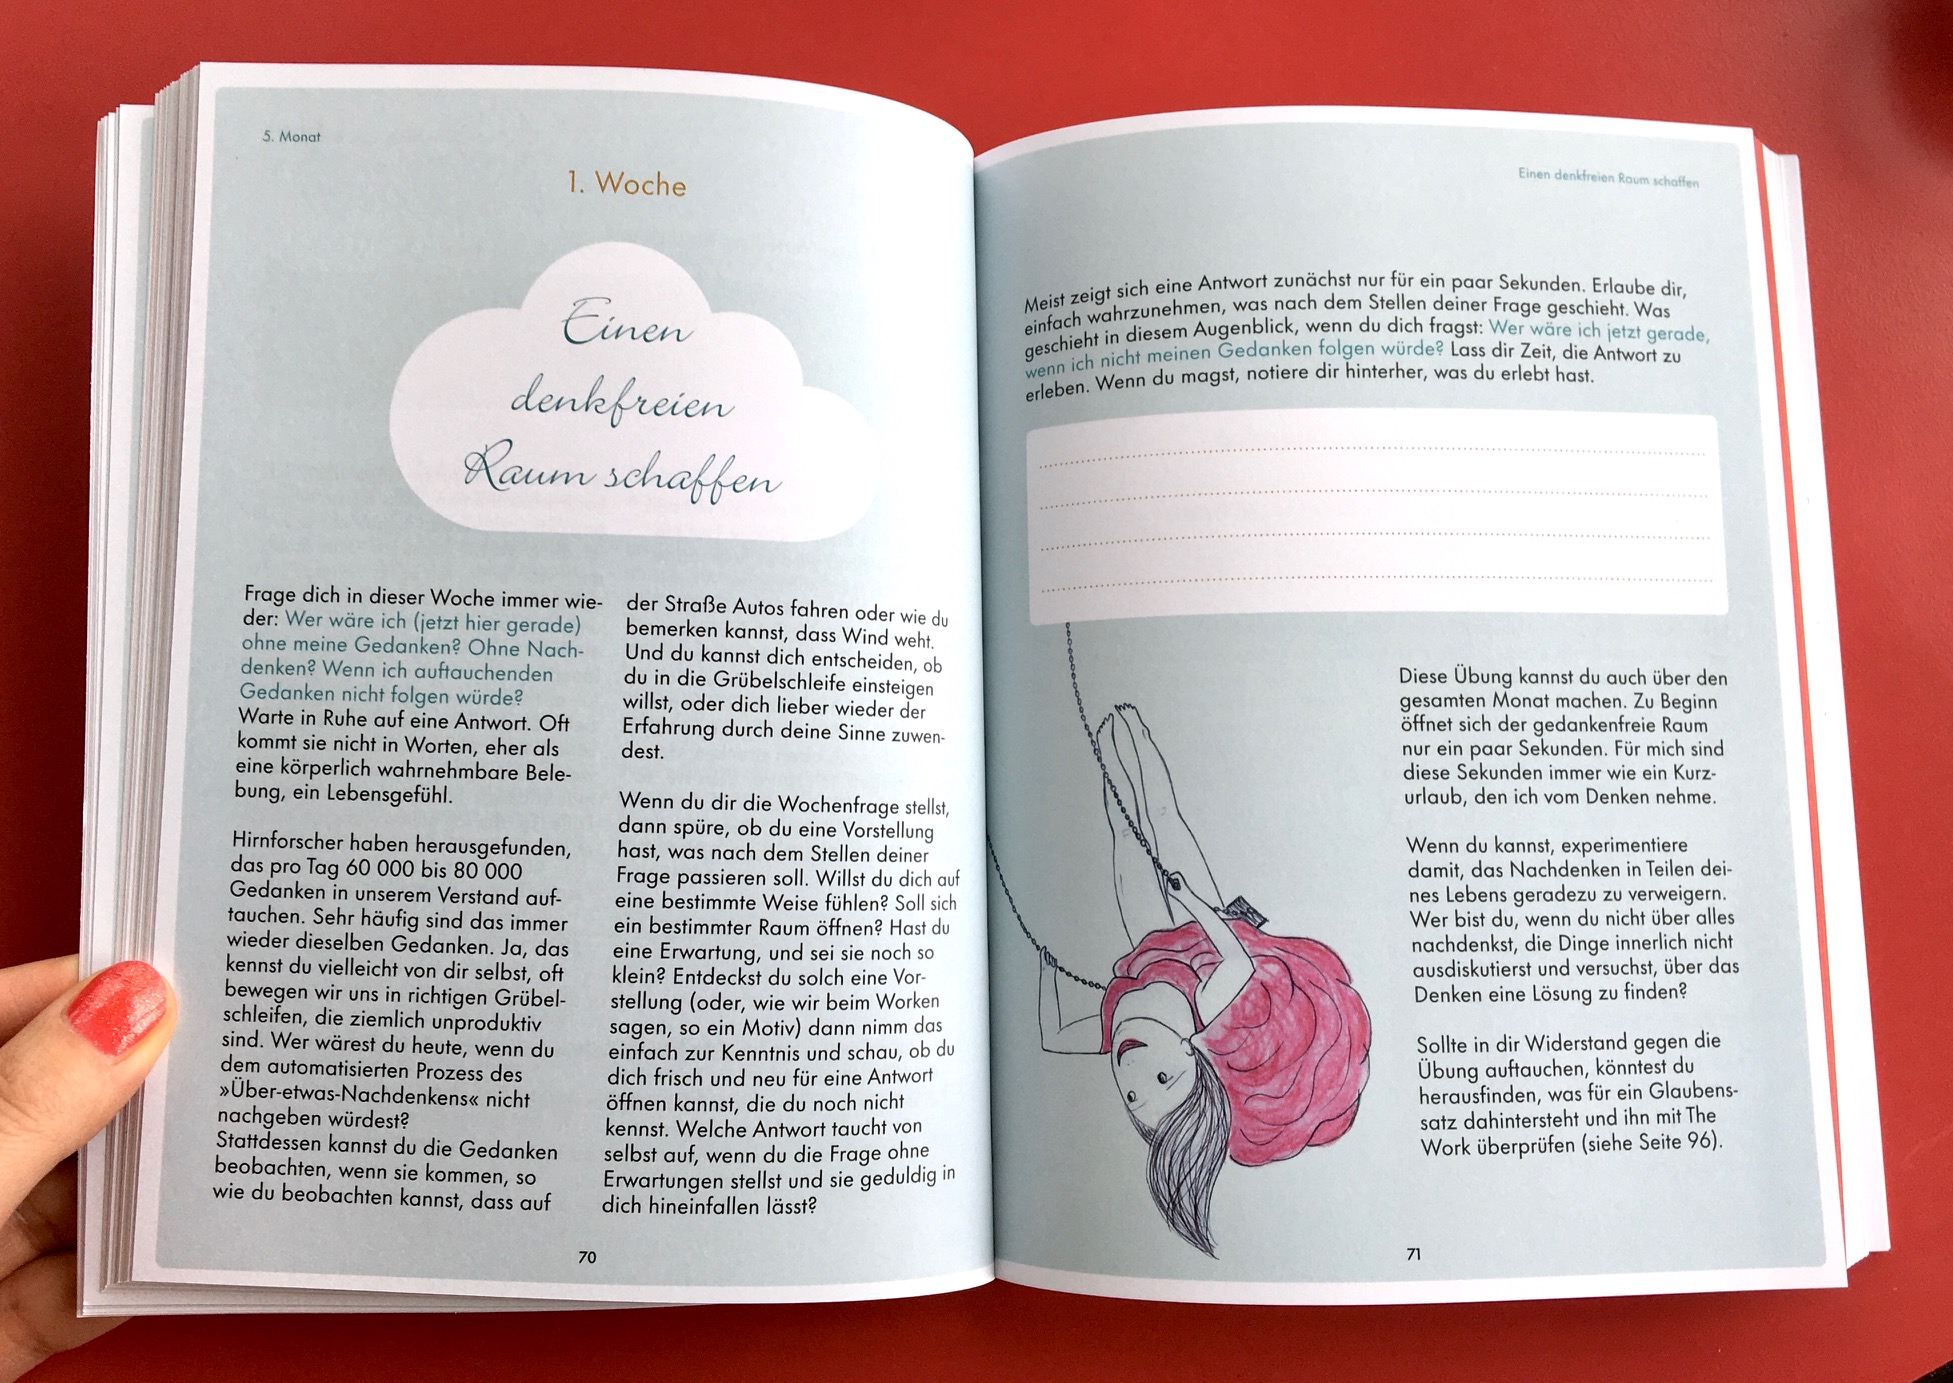 5. Monat
1. Woche
Einen
denkfreien
Raum schaffen
Frage dich in dieser Woche immer wie-
der: Wer wäre ich (jetzt hier gerade)
ohne meine Gedanken? Ohne Nach-
denken? Wenn ich auftauchenden
Gedanken nicht folgen würde?
Warte in Ruhe auf eine Antwort. Oft
kommt sie nicht in Worten, eher als
eine körperlich wahrnehmbare Bele-
bung, ein Lebensgefühl.
Hirnforscher haben herausgefunden,
das pro Tag 60 000 bis 80 000
Gedanken in unserem Verstand auf-
tauchen. Sehr häufig sind das immer
wieder dieselben Gedanken. Ja, das
kennst du vielleicht von dir selbst, oft
bewegen wir uns in richtigen Grübel-
schleifen, die ziemlich unproduktiv
sind. Wer wärest du heute, wenn du
dem automatisierten Prozess des
»Über-etwas-Nachdenkens« nicht
nachgeben würdest?
Stattdessen kannst du die Gedanken
beobachten, wenn sie kommen, so
wie du beobachten kannst, dass auf
der Straße Autos fahren oder wie du
bemerken kannst, dass Wind weht.
Und du kannst dich entscheiden, ob
du in die Grübelschleife einsteigen
willst, oder dich lieber wieder der
Erfahrung durch deine Sinne zuwen-
dest.
Wenn du dir die Wochenfrage stellst,
dann spüre, ob du eine Vorstellung
hast, was nach dem Stellen deiner
Frage passieren soll. Willst du dich auf
eine bestimmte Weise fühlen? Soll sich
ein bestimmter Raum öffnen? Hast du
eine Erwartung, und sei sie noch so
klein? Entdeckst du solch eine Vor-
stellung (oder, wie wir beim Worken
sagen, so ein Motiv) dann nimm das
einfach zur Kenntnis und schau, ob du
dich frisch und neu für eine Antwort
öffnen kannst, die du noch nicht
kennst. Welche Antwort taucht von
selbst auf, wenn du die Frage ohne
Erwartungen stellst und sie geduldig in
dich hineinfallen lässt?
70
Einen denkfreien Raum schaffen
Meist zeigt sich eine Antwort zunächst nur für ein paar Sekunden. Erlaube dir,
einfach wahrzunehmen, was nach dem Stellen deiner Frage geschieht. Was
geschieht in diesem Augenblick, wenn du dich fragst: Wer wäre ich jetzt gerade,
wenn ich nicht meinen Gedanken folgen würde? Lass dir Zeit, die Antwort zu
erleben. Wenn du magst, notiere dir hinterher, was du erlebt hast.
Diese Übung kannst du auch über den
gesamten Monat machen. Zu Beginn
öffnet sich der gedankenfreie Raum
nur ein paar Sekunden. Für mich sind
diese Sekunden immer wie ein Kurz-
urlaub, den ich vom Denken nehme.
Wenn du kannst, experimentiere
damit, das Nachdenken in Teilen dei-
nes Lebens geradezu zu verweigern.
Wer bist du, wenn du nicht über alles
nachdenkst, die Dinge innerlich nicht
ausdiskutierst und versuchst, über das
Denken eine Lösung zu finden?
Sollte in dir Widerstand gegen die
Übung auftauchen, könntest du
herausfinden, was für ein Glaubens-
satz dahintersteht und ihn mit The
Work überprüfen (siehe Seite 96).
71